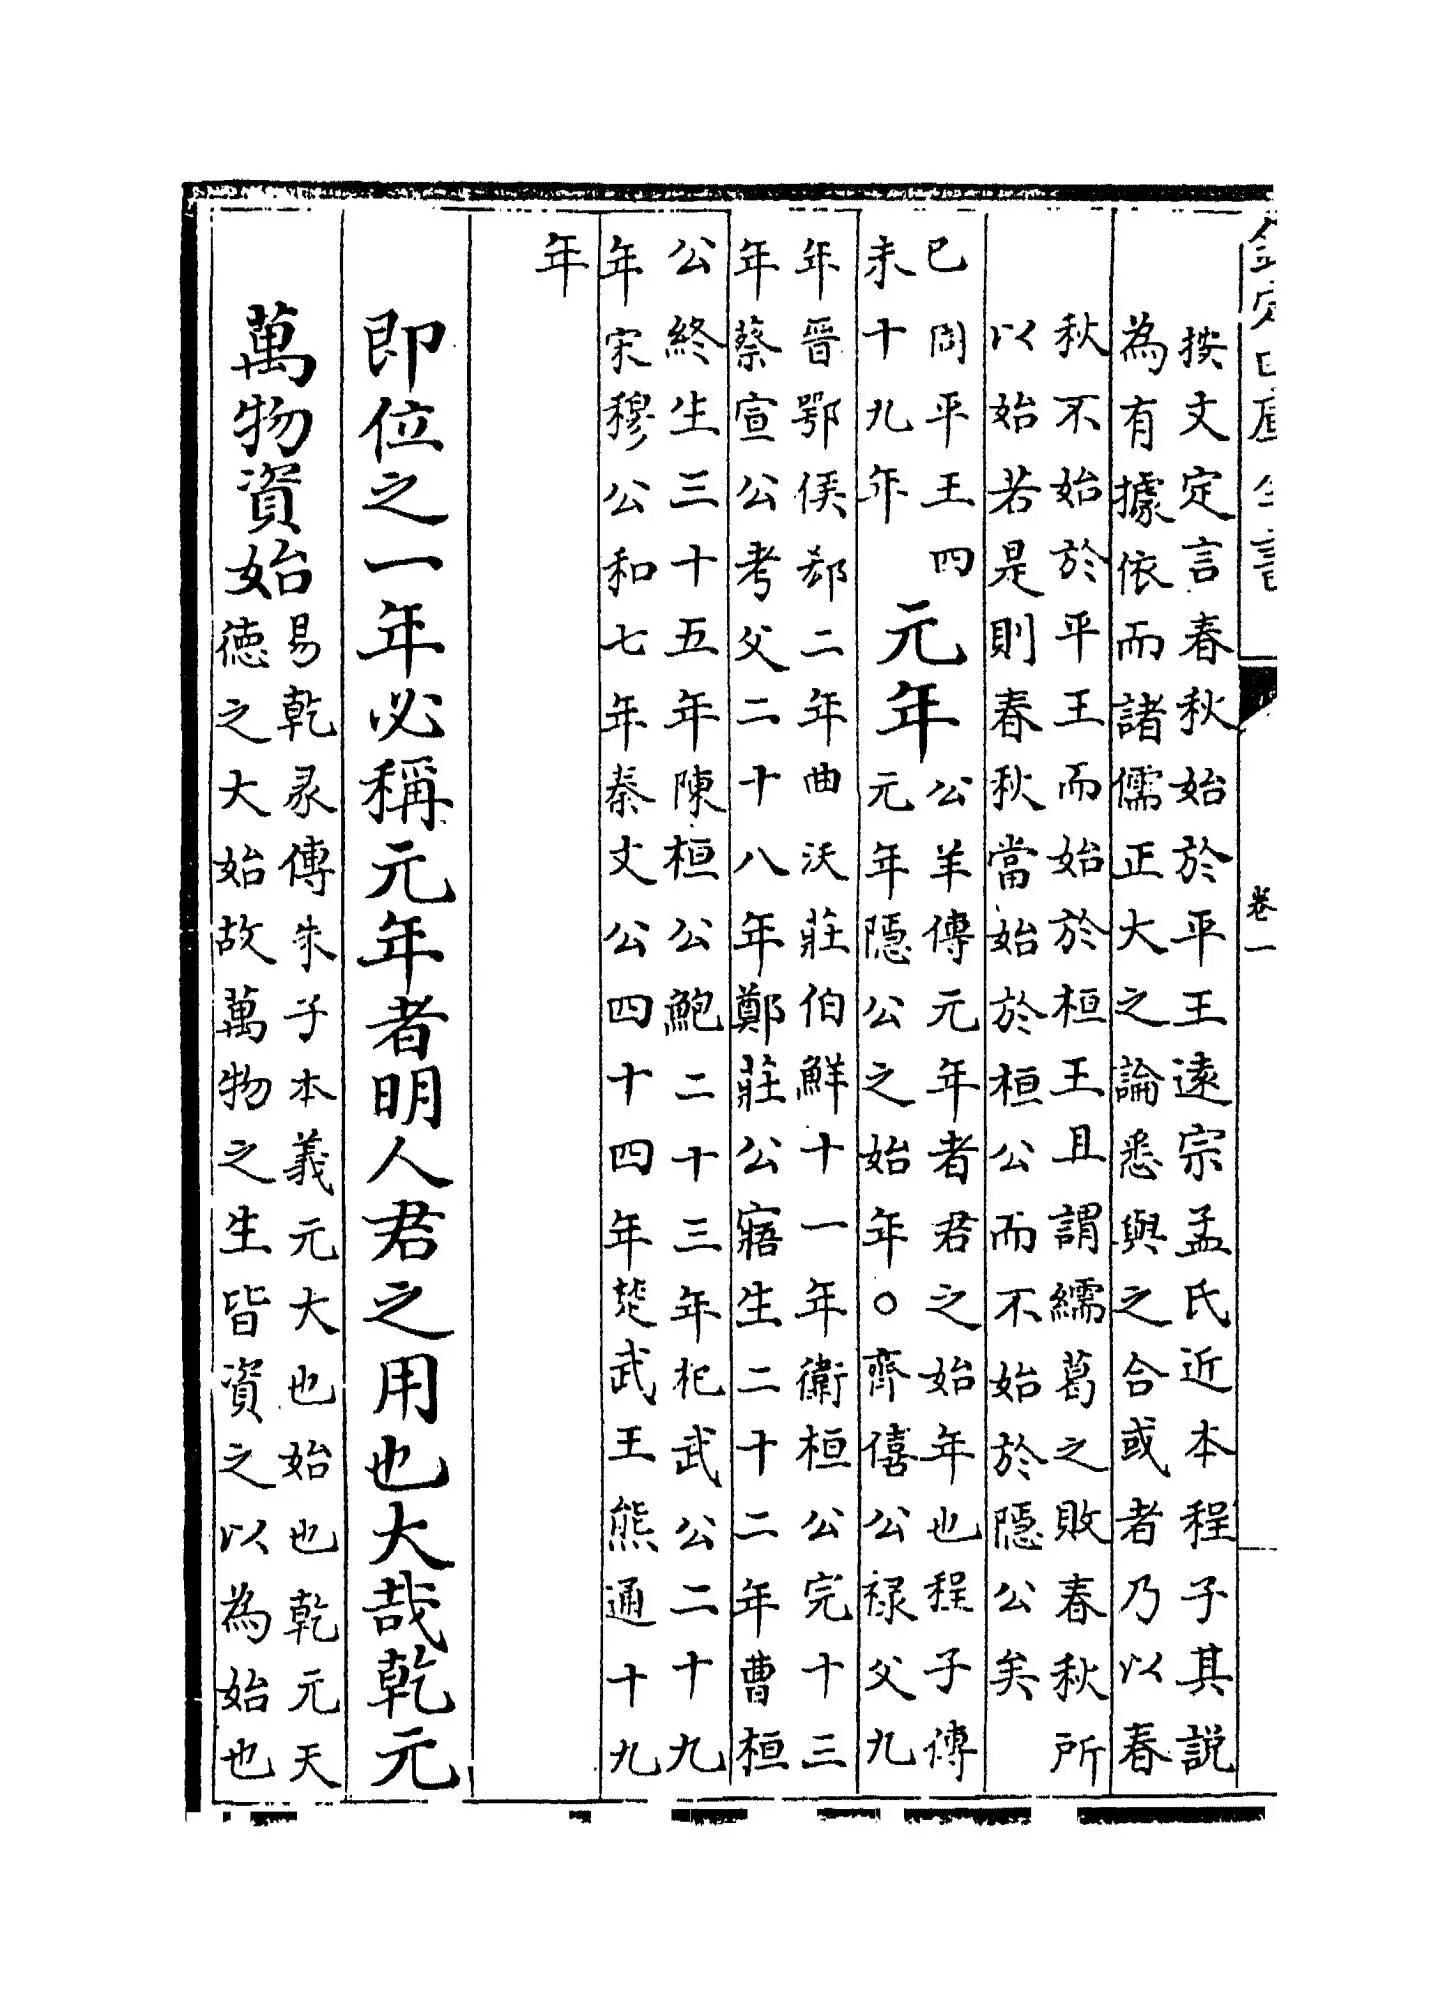 欽定四庫全書
卷一
按文定言春秋始於平王遠宗孟氏近本程子其說
為有據依而諸儒正大之論悉與之合或者乃以春
秋不始於平王而始於桓王且謂繻葛之敗春秋所
以始若是則春秋當始於桓公而不始於隱公矣
己周平王四
未十九年
元年
公羊傳元年者君之始年也程子傳
元年隱公之始年○齊僖公禄父九
年晉鄂侯郄二年曲沃莊伯鮮十一年衛桓公完十三
年蔡宣公考父二十八年鄭莊公寤生二十二年曹桓
公終生三十五年陳桓公鮑二十三年杞武公二十九
年宋穆公和七年秦文公四十四年楚武王熊通十九
年
即位之一年必稱元年者明人君之用也大哉乾元
萬物資始
易乾彖傳朱子本義元大也始也乾元天
德之大始故萬物之生皆資之以為始也